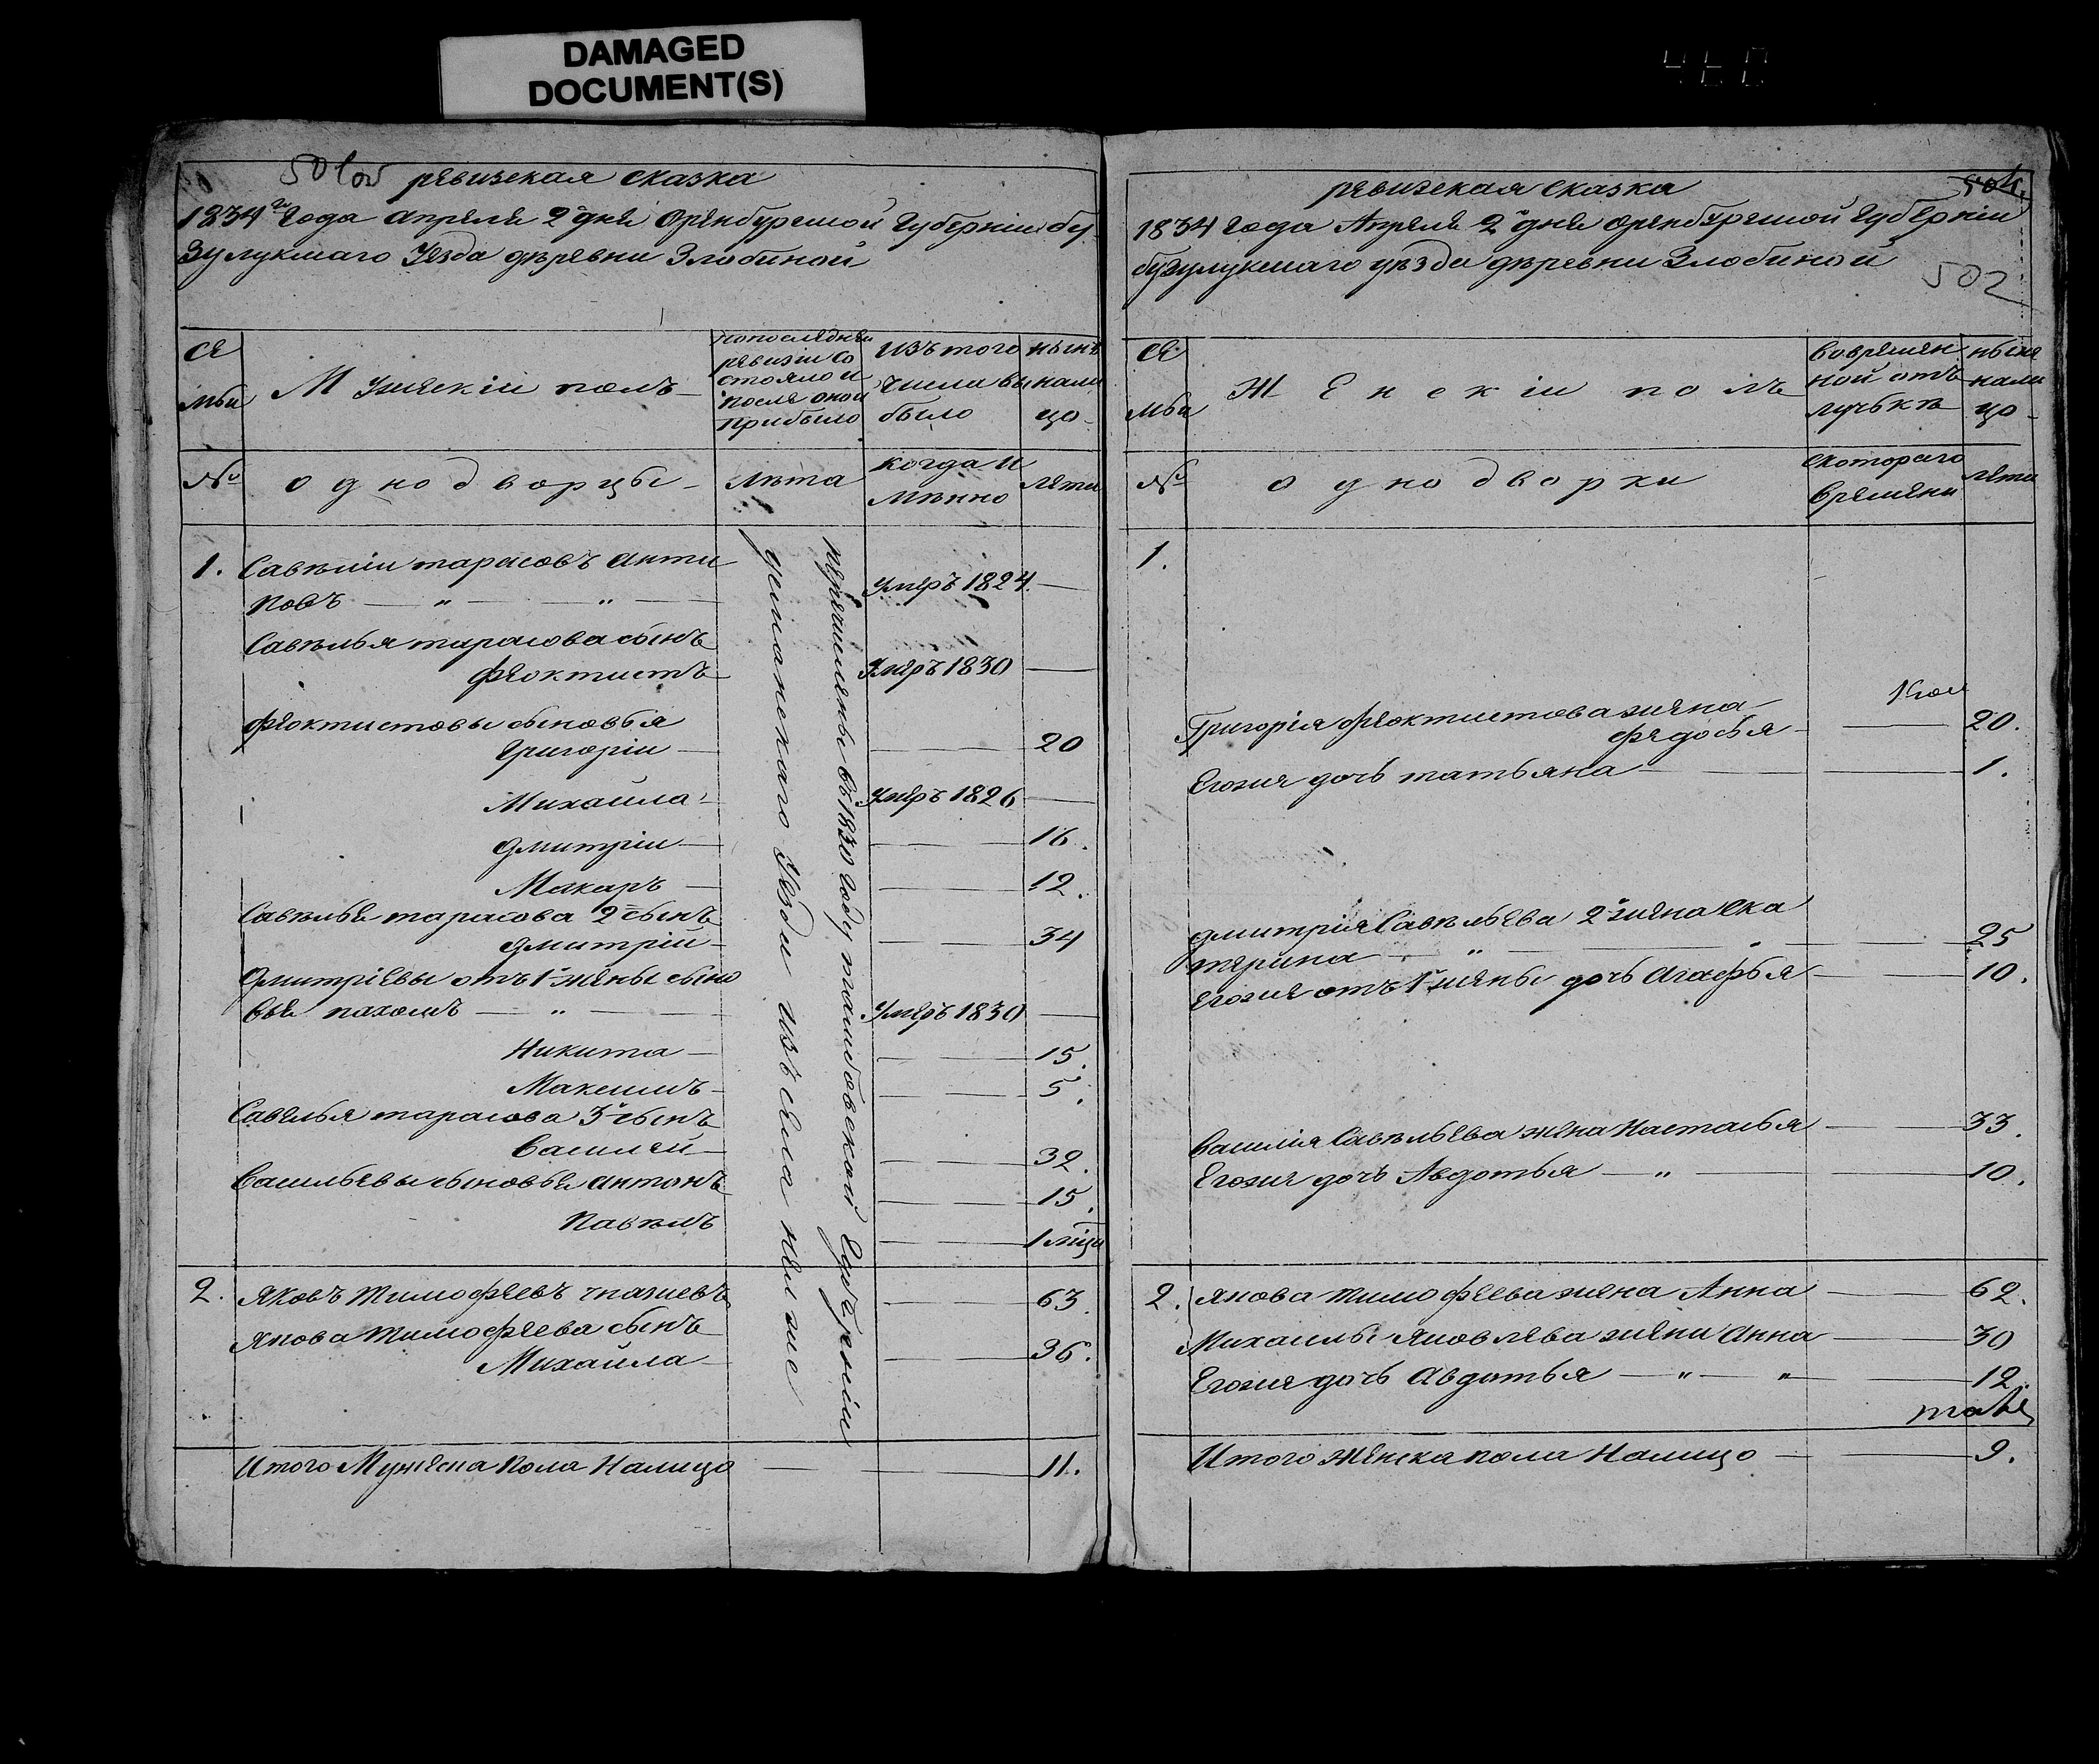 DAMAGED
DOCUMENT(S)
460
501 об
ревизская сказка
1834го Года апреля 2 дня Оренбурской Губернiи бу
зулукскаго Уезда деревни Злобиной
се
мьи
Мужескiи полъ
попоследнеи
ревизiи со
стояло и
после оной
прибыло
изътого
числа вы
было
нынѣ
нали
цо
№
однодворцы
лѣта
когда и
мѣнно
лета
1.
Савѣлiи тарасовъ анти
повъ — " — " —
умеръ 1824. —
Савѣлья тарасова сынъ
феоктистъ
умеръ 1830 —
феоктистовы сыновья
григорiи — 20
Михаила умеръ 1826 —
дмитрiи — 16.
Макаръ — 12.
Савѣлья тарасова 2 сынъ
дмитрiй — 34
дмитрiевы отъ 1 жены сыно
вья пахомъ — " — умеръ 1830 —
Никита — 15.
Максимъ — 5.
Савелья тарасова 3 сынъ
Василей — 32.
Васильевы сыновья антонъ — 15.
Павѣлъ — 1 мца
перечислены въ 1830 году
уезда изъ села
2. Яковъ тимофеевъ — 63.
Якова тимофеева сынъ
Михайла — 36.
Итого Мужеска пола Налицо — 11.
ревизская сказка
501.
1834 года Апреля 2 дня оренбурской губернiи
бузулукскаго уѣзда деревни Злобиной
502
се
мьи
Женскiи полъ
вовремен
ной отъ
лучькѣ
ныне
нали
цо
№
однодворки
скотораго
времяни
лета
1.
Григорiя феоктистова жена
федосья — 20.
Егожа дочь татьяна — 1.
дмитрiя Савѣльева 2 жена ека
терина — " — " — 25
Егожа отъ 1 жены дочь агафья — 10.
Василiя Савѣльева жена настасья — 33.
Егожа дочь Авдотья — " — 10.
2. Якова тимофеева жена Анна — 62.
Михаилы Яковлева жена анна — 30
Егожа дочь авдотья — " — " — 12.
Итого женска пола Налицо — 9.